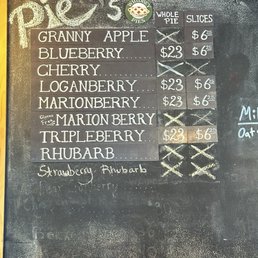 pie's
WHOLE PIE SLICES
GRANNY APPLE $6
BLUEBERRY $23 $6
CHERRY
LOGANBERRY $23 $6
MARIONBERRY $23 $6
MARION BERRY
TRIPLEBERRY $23 $6
RHUBARB
Strawberry Rhubarb